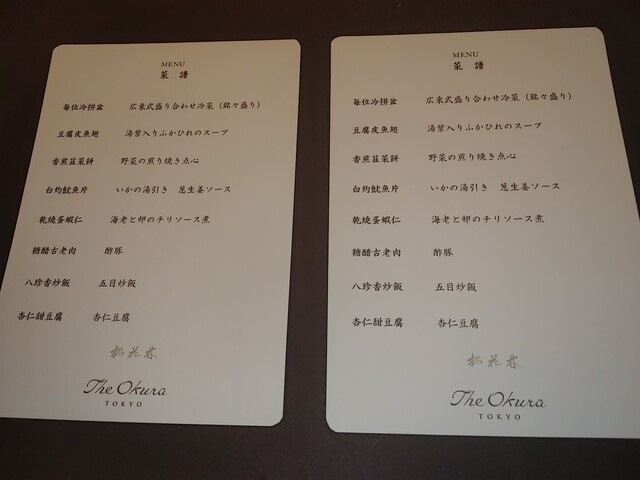 MENU
菜譜
每位冷拼盆 広東式盛り合わせ冷菜（銘々盛り）
豆腐皮魚翅 湯葉入りふかひれのスープ
香煎韮菜餅 野菜の煎り焼き点心
白灼魷魚片 いかの湯引き 葱生姜ソース
乾燒蛋蝦仁 海老と卵のチリソース煮
糖醋古老肉 酢豚
八珍香炒飯 五目炒飯
杏仁甜豆腐 杏仁豆腐
桃花林
The Okura
TOKYO
MENU
菜譜
每位冷拼盆 広東式盛り合わせ冷菜（銘々盛り）
豆腐皮魚翅 湯葉入りふかひれのスープ
香煎韮菜餅 野菜の煎り焼き点心
白灼魷魚片 いかの湯引き 葱生姜ソース
乾燒蛋蝦仁 海老と卵のチリソース煮
糖醋古老肉 酢豚
八珍香炒飯 五目炒飯
杏仁甜豆腐 杏仁豆腐
桃花林
The Okura
TOKYO